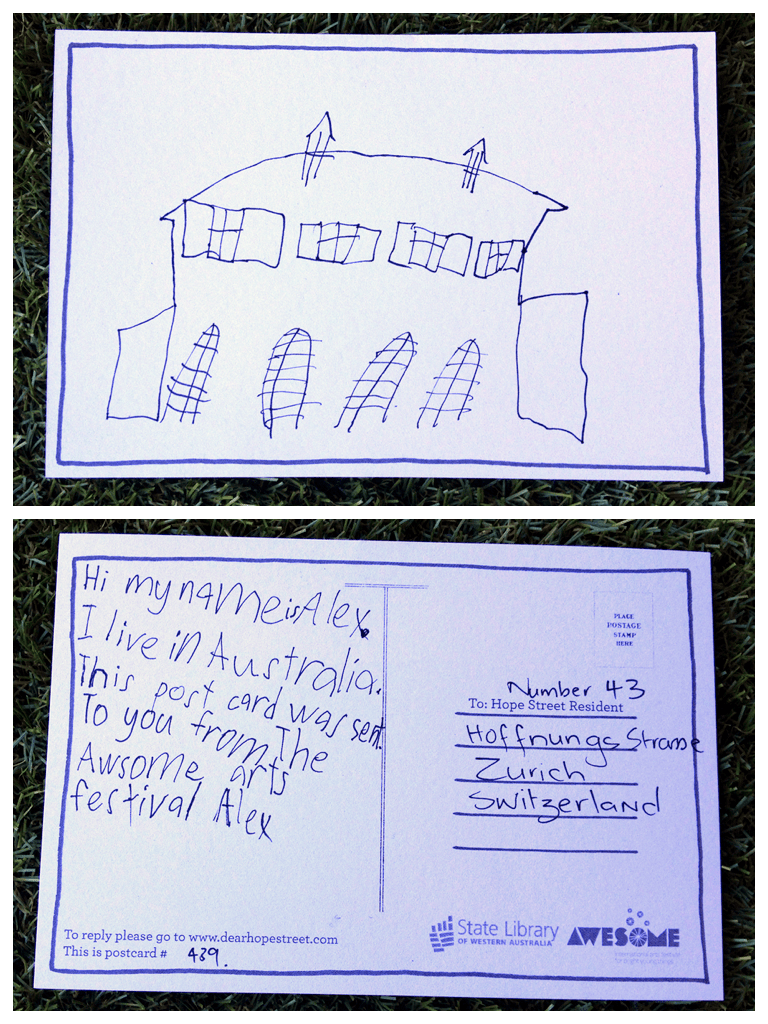 Hi my name is Alex.
I live in Australia.
This post card was sent.
To you from The
Awsome arts
festival Alex
PLACE
POSTAGE
STAMP
HERE
Number 43
To: Hope Street Resident
Hoffnungs Strasse
Zurich
Switzerland
To reply please go to www.dearhopestreet.com
This is postcard # 439.
State Library
OF WESTERN AUSTRALIA
AWESOME